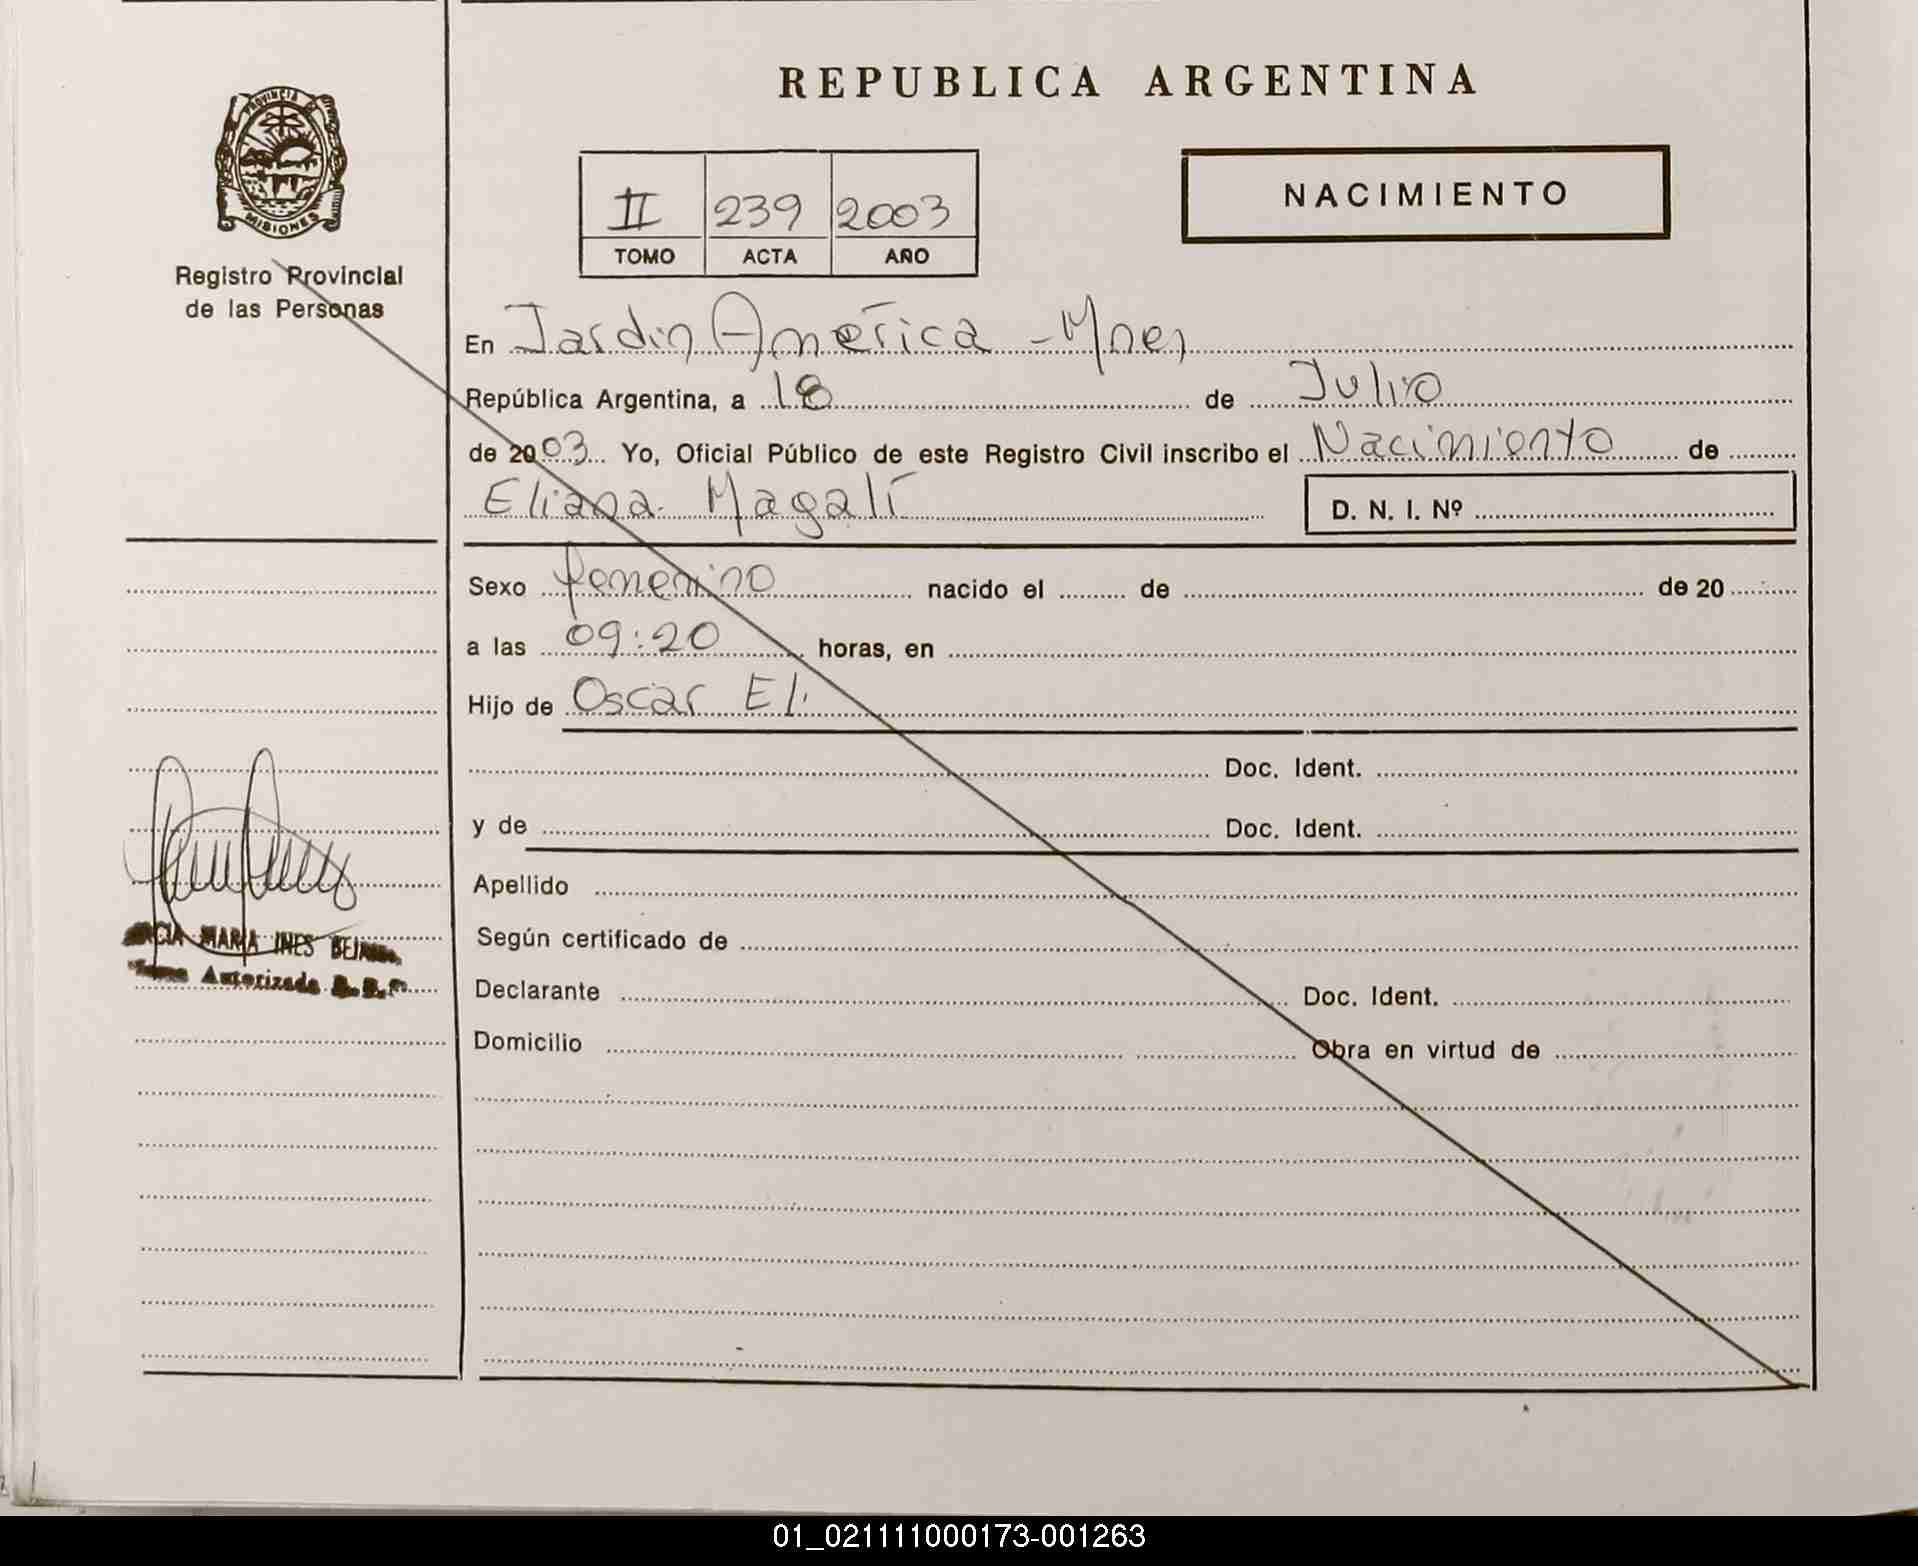 REPUBLICA ARGENTINA
PROVINCIA DE
MISIONES
Registro Provincial
de las Personas
II 239 2003
TOMO ACTA AÑO
NACIMIENTO
En Jardin América - Mnes
República Argentina, a 18 de Julio
de 2003 Yo, Oficial Público de este Registro Civil inscribo el Nacimiento de
Eliana Magalí
D. N. I. Nº
Sexo femenino nacido el de de 20
a las 09:20 horas, en
Hijo de Oscar El
Doc. Ident.
y de Doc. Ident.
Apellido
Según certificado de
Declarante Doc. Ident.
Domicilio Obra en virtud de
MARIA INES
Autorizada
01_021111000173-001263